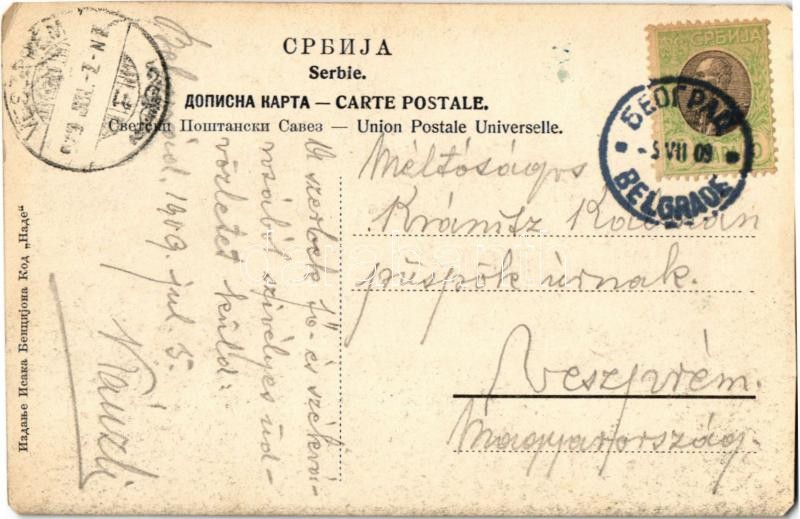 СРБИЈА
Serbie.
ДОПИСНА КАРТА — CARTE POSTALE.
Светски Поштански Савез — Union Postale Universelle.
СРБИЈА
БЕОГРАД
5 VII 09
BELGRADE
Издање Исака Бенцијона Код „Наде"
Belgrád. 1909. jul. 5.
A szerbek fő- és székvá-
rosából szívélyes üd-
vözletet küld:
Méltóságos
Kránitz Kálmán
püspök úrnak.
Veszprém.
Magyarország.
darabanth